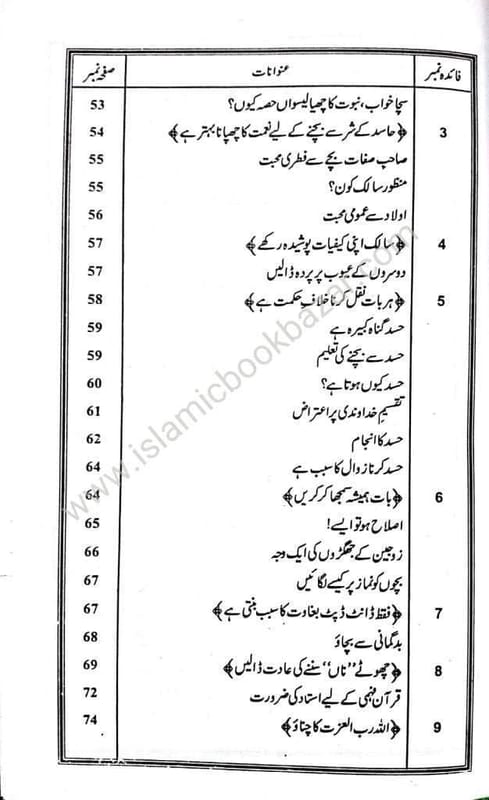 فائدہ نمبر عنوانات صفحہ نمبر
سچا خواب، نبوت کا چھیالیسواں حصہ کیوں؟ 53
3 ﴿حاسد کے شر سے بچنے کے لیے نعمت کا چھپانا بہتر ہے﴾ 54
صاحب صفات بچے سے فطری محبت 55
منظور سالک کون؟ 55
اولاد سے عمومی محبت 56
4 ﴿سالک اپنی کیفیات پوشیدہ رکھے﴾ 57
دوسروں کے عیوب پر پردہ ڈالیں 57
5 ﴿ہر بات نقل کرنا خلاف حکمت ہے﴾ 58
حسد گناہ کبیرہ ہے 59
حسد سے بچنے کی تعلیم 59
حسد کیوں ہوتا ہے؟ 60
تقسیم خداوندی پر اعتراض 61
حسد کا انجام 62
حسد کرنا زوال کا سبب ہے 64
6 ﴿بات ہمیشہ سمجھا کر کریں﴾ 64
اصلاح ہو تو ایسے! 65
زوجین کے جھگڑوں کی ایک وجہ 66
بچوں کو نماز پر کیسے لگائیں 67
7 ﴿فقط ڈانٹ ڈپٹ بغاوت کا سبب بنتی ہے﴾ 67
بدگمانی سے بچاؤ 68
8 ﴿چھوٹے "ناں" سننے کی عادت ڈالیں﴾ 69
قرآن فہمی کے لیے استاد کی ضرورت 72
9 ﴿اللہ رب العزت کا چناؤ﴾ 74
www.islamicbookbazar.com